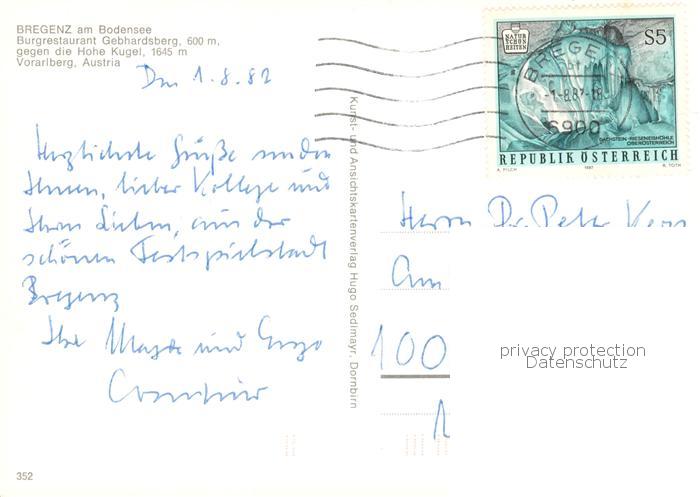 BREGENZ am Bodensee
Burgrestaurant Gebhardsberg, 600 m,
gegen die Hohe Kugel, 1645 m
Vorarlberg, Austria
Den 1.8.82
Herzlichste Grüße senden
Ihnen, lieber Kollege und
Ihren Lieben, aus der
schönen Festspielstadt
Bregenz
Ihre und
Kunst- und Ansichtskartenverlag Hugo Sedlmayr, Dornbirn
NATUR
SCHÖN
HEITEN
S5
BREGE
-1.-8.87-18
6900
DACHSTEIN-RIESENEISHÖHLE
OBERÖSTERREICH
REPUBLIK ÖSTERREICH
A. PILCH 1987 R. TOTH
Herrn Dr. Peter
Am
100
1
privacy protection
Datenschutz
352